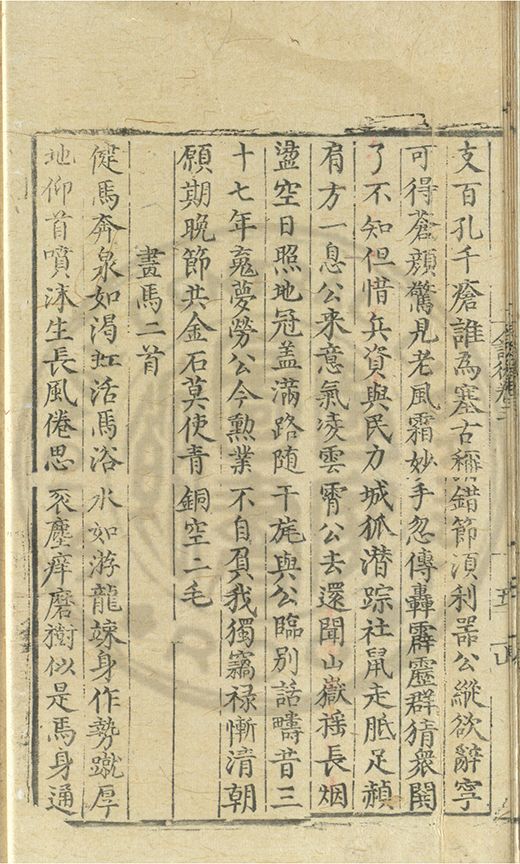 支百孔千瘡誰為塞古稱錯節湏利噐公縱欲辭寧
可得蒼顔驚見老風霜妙手忽傳轟霹靂群猜衆鬨
了不知但惜兵資與民力城狐潜踪社鼠走胝足赬
肩方一息公来意氣凌雲霄公去還聞山嶽揺長烟
盪空日照地冠盖滿路随干旄與公臨别話疇昔三
十七年𩲸夢勞公今勲業不自負我獨竊禄慚清朝
願期晚節共金石莫使青銅空二毛
畫馬二首
健馬奔泉如渴虹活馬浴水如游龍竦身作勢蹴厚
地仰首噴沫生長風倦思衮塵痒磨樹似是馬身通